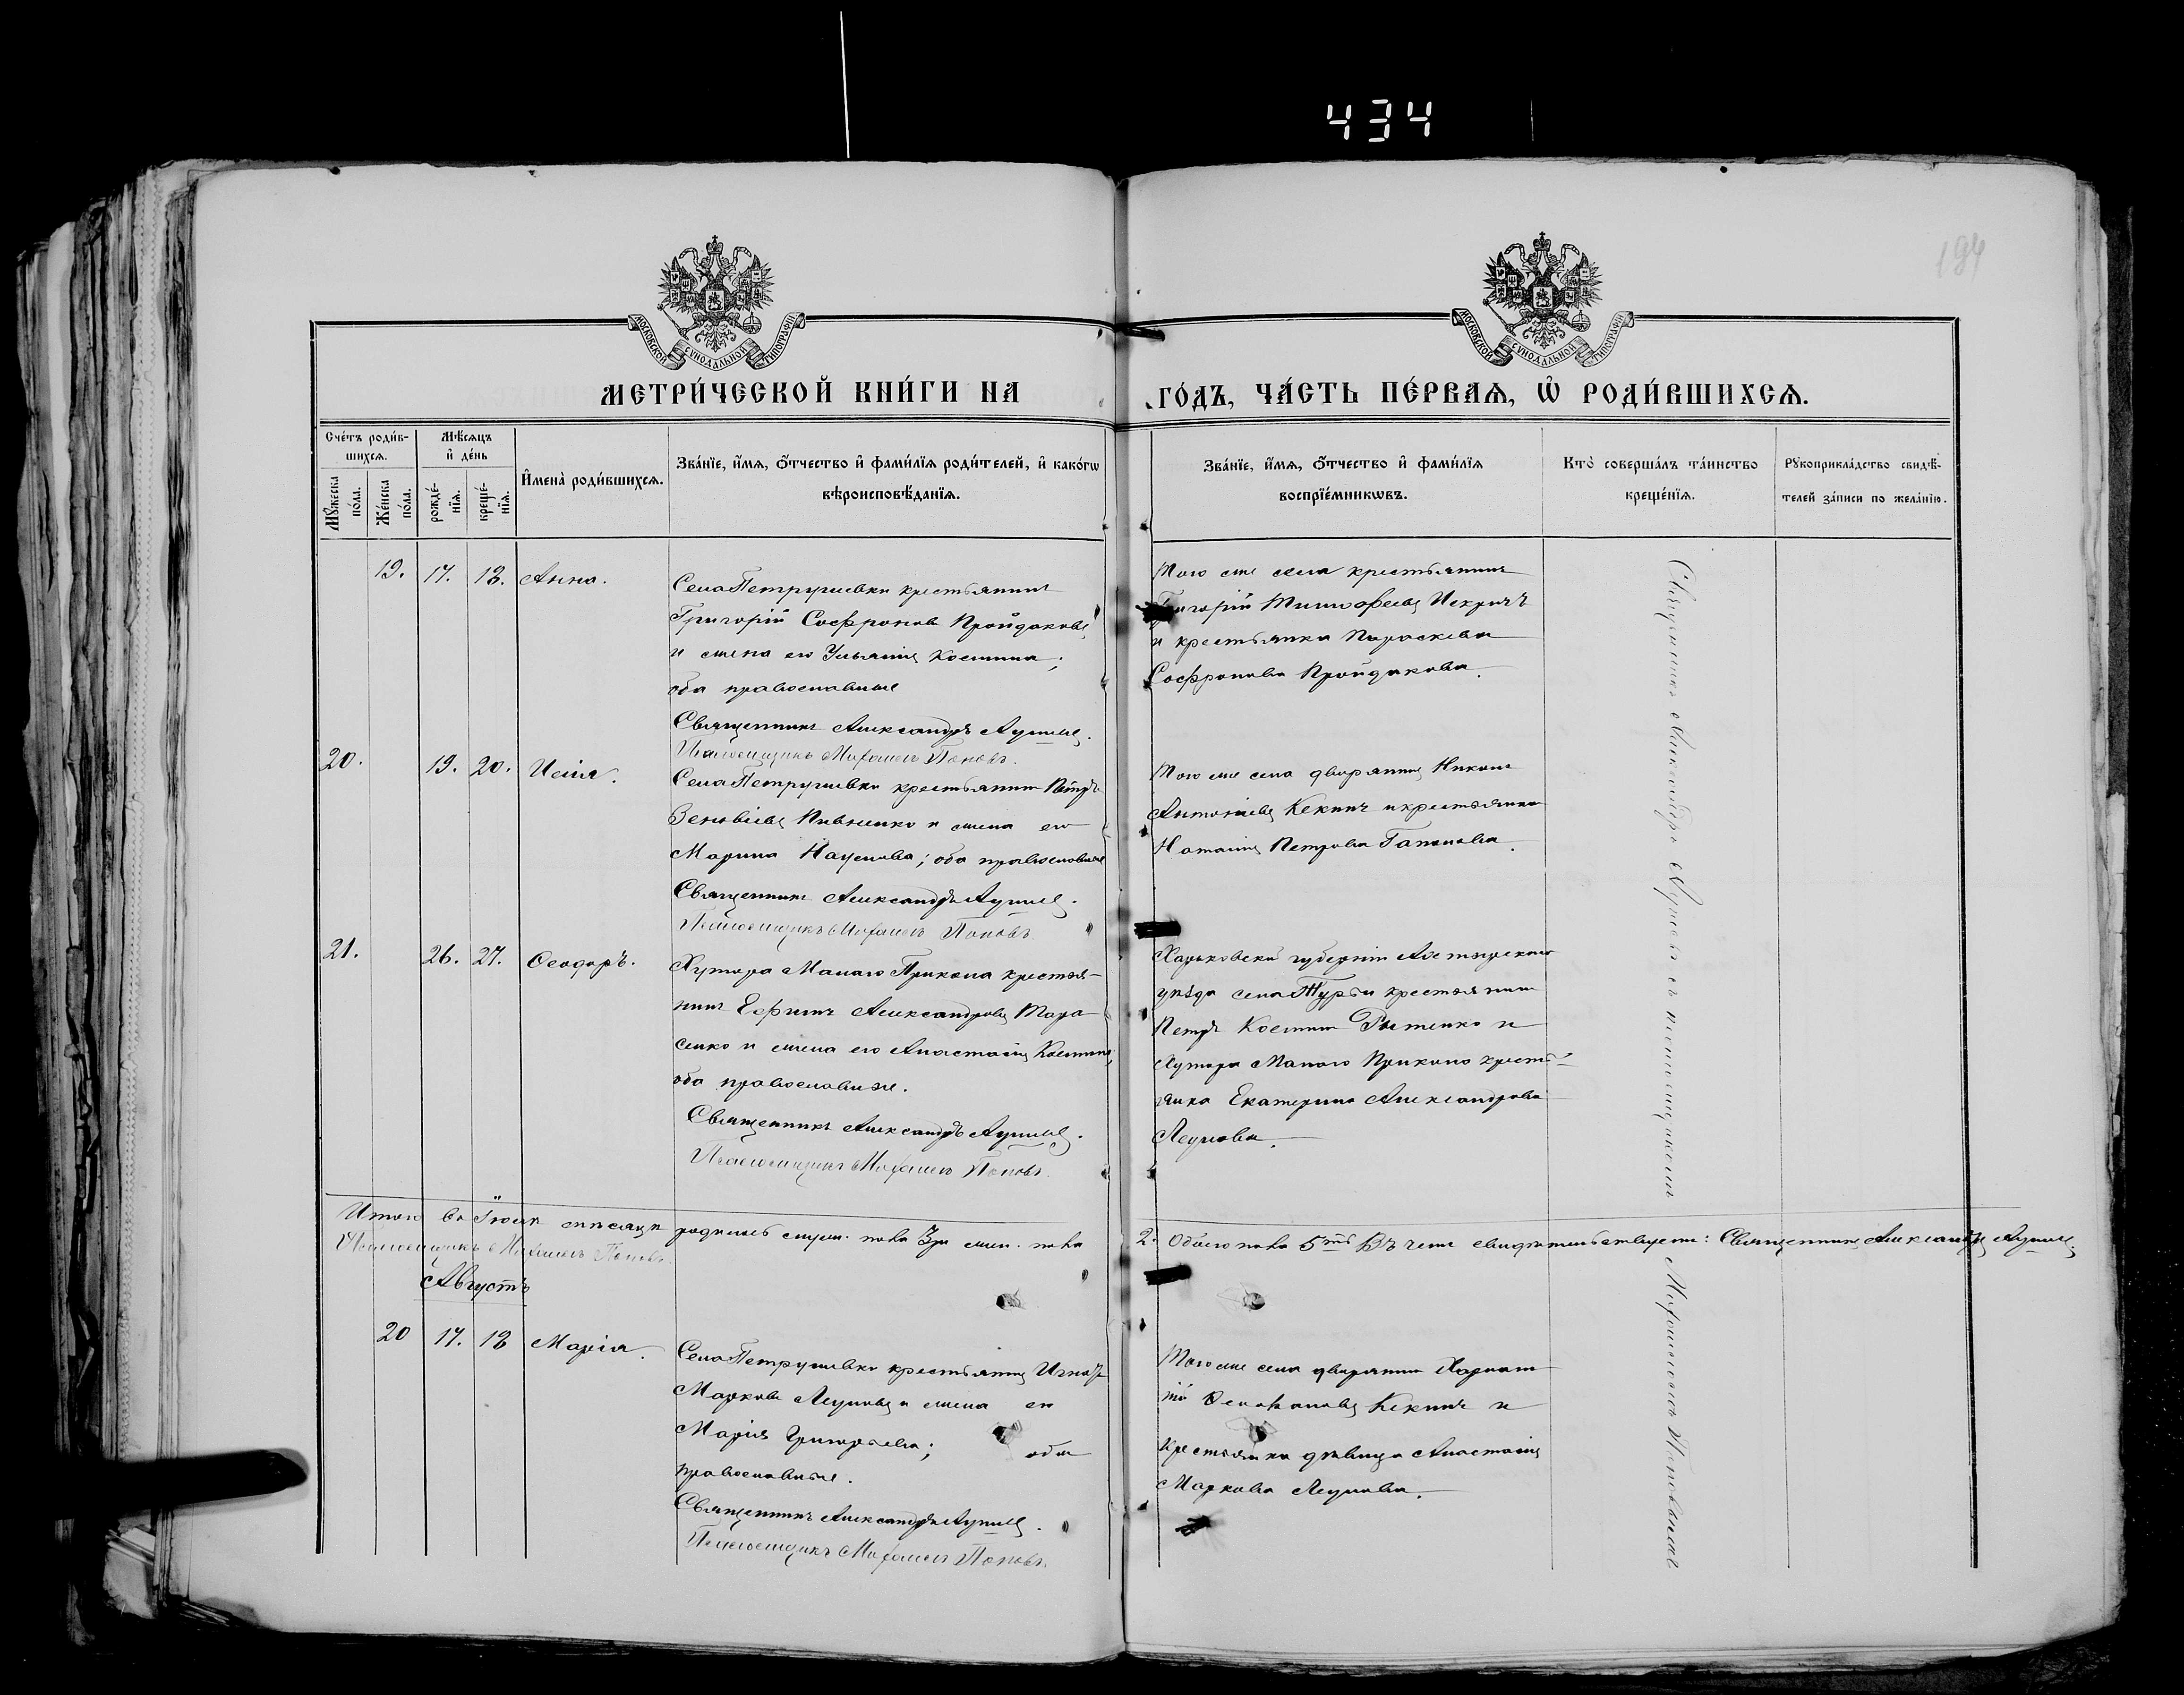 434
194
МОСКОВСКОЙ СѴНОДАЛЬНОЙ ТИПОГРАФІИ
МОСКОВСКОЙ СѴНОДАЛЬНОЙ ТИПОГРАФІИ
МЕТРИ́ЧЕСКОЙ КНИ́ГИ НА
ГО́ДЪ, ЧА́СТЬ ПЕ́РВАѦ, Ѡ҆ РОДИ́ВШИХСѦ.
Сче́тъ роди́в-
шихсѧ.
Мꙋ́жеска по́ла.
Же́нска по́ла.
Мѣ́сѧцъ
и҆ де́нь
рожде́-
нїѧ.
креще́-
нїѧ.
И҆мена̀ роди́вшихсѧ.
Зва́нїе, и҆́мѧ, ѻ҆́тчество и҆ фами́лїѧ роди́телей, и҆ како́гѡ
вѣроисповѣ́данїѧ.
Зва́нїе, и҆́мѧ, ѻ҆́тчество и҆ фами́лїѧ
воспрїе́мникѡвъ.
Кто̀ соверша́лъ та́инство
креще́нїѧ.
Рꙋкоприкла́дство свидѣ́-
телей за́писи по жела́нїю.
19. 17. 18. Анна.
Села Петрушевки крестьянинъ
Григорій Софроновъ Пройдаковъ
и жена его Ульянія Костина;
оба православные
Священникъ Александръ
Псаломщикъ Михаилъ Поповъ.
Того же села крестьянинъ
Григорій Тимофеевъ
и крестьянка Параскева
Софронова Пройдакова.
20. 19. 20. Илія.
Села Петрушевки крестьянинъ Петръ
Зеновіевъ Пивненко и жена его
Марина Наумова; оба православные
Священникъ Александръ
Псаломщикъ Михаилъ Поповъ
Того же села дворянинъ Никонъ
Антоніевъ Кекинъ и крестьянка
Наталія Петрова Гапонова.
21. 26. 27. Ѳеодоръ.
Хутора Малаго Прикола крестья-
нинъ Ефимъ Александровъ Тара-
сенко и жена его Анастасія Костина,
оба православные.
Священникъ Александръ
Псаломщикъ Михаилъ Поповъ.
Харьковской губерніи Ахтырскаго
уѣзда села Турьи крестьянинъ
Петръ Костинъ и
Хутора Малаго Прикола кресть-
янка Екатерина Александрова
Леунова.
Итого въ Іюлѣ мѣсяцѣ родилось муж. пола 3, жен. пола
2. Обоего пола 5ть. Въ чемъ свидѣтельствуетъ: Священникъ Александръ
Псаломщикъ Михаилъ Поповъ.
Августъ
20 17. 18 Марія.
Села Петрушевки крестьянинъ Игнатъ
Марковъ Леуновъ и жена его
Марія Григорьева; оба
православные.
Священникъ Александръ
Псаломщикъ Михаилъ Поповъ.
Того же села дворянинъ
Кекинъ и
Крестьянка дѣвица Анастасія
Маркова Леунова.
Священникъ Александръ съ псаломщикомъ Михаиломъ Поповымъ